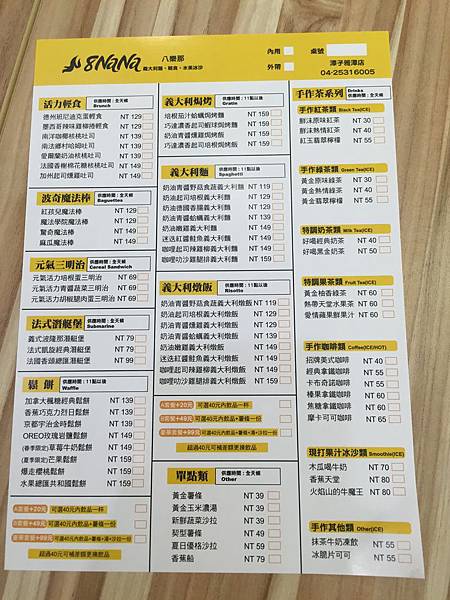 8NaNa
八樂那
義大利麵、輕食、水果冰沙
內用
外帶
桌號
潭子雅潭店
04-25316005
活力輕食
供應時間:全天候
Brunch
德州班尼迪克蛋輕食 NT 129
墨西哥辣味雞柳捲輕食 NT 129
南洋咖椰核桃吐司 NT 139
南法鄉村哈姆吐司 NT 139
愛爾蘭奶油核桃吐司 NT 139
法國香榭棉花糖核桃吐司 NT 149
加州起司燻雞吐司 NT 149
波奇魔法棒
供應時間:全天候
Baguettes
紅孩兒魔法棒 NT 139
魔法學院魔法棒 NT 149
聲奇魔法棒 NT 149
麻瓜魔法棒 NT 149
元氣三明治
供應時間:全天候
Cereal Sandwich
元氣活力培根蛋三明治 NT 69
元氣活力青醬蔬菜三明治 NT 69
元氣活力胡椒腿肉蛋三明治 NT 69
法式潛艇堡
供應時間:全天候
Submarine
義式波隆那潛艇堡 NT 79
法式凱旋經典潛艇堡 NT 79
法國香頌總匯潛艇堡 NT 99
鬆餅
供應時間:11點以後
Waffle
加拿大楓糖經典鬆餅 NT 139
香蕉巧克力烈日鬆餅 NT 139
京都宇治金時鬆餅 NT 139
OREO玫瑰岩鹽鬆餅 NT 149
(春季限定)草莓牛奶鬆餅 NT 149
(夏季限定)芒果鬆餅 NT 159
爆走櫻桃鬆餅 NT 159
水果總共和國鬆餅 NT 159
A套餐+20元 可選40元內飲品一杯
B套餐+49元 可選40元內飲品+薯條一份
豪華套餐+99元 可選40元內飲品+薯條+湯+沙拉一份
超過40元可補差額更換飲品
義大利焗烤
供應時間:11點以後
Gratin
培根茄汁蛤蠣焗烤麵 NT 159
巧達濃香起司蝦球焗烤麵 NT 159
奶油青醬蛤蠣焗烤飯 NT 159
巧達濃香起司燻雞焗烤飯 NT 159
義大利麵
供應時間:11點以後
Spaghetti
奶油青醬野菇食蔬義大利麵 NT 119
奶油起司培根義大利麵 NT 129
奶油德國香腸義大利麵 NT 129
奶油青醬蛤蠣義大利麵 NT 149
奶油青醬燻雞義大利麵 NT 149
奶油嫩雞義大利麵 NT 149
迷迭紅醬鮭魚義大利麵 NT 149
咖哩起司辣雞柳義大利麵 NT 159
咖哩叻沙雞腿排義大利麵 NT 159
義大利燉飯
供應時間:11點以後
Risotto
奶油青醬野菇食蔬義大利燉飯 NT 119
奶油青醬燻雞義大利燉飯 NT 129
奶油青醬蛤蠣義大利燉飯 NT 149
奶油嫩雞義大利燉飯 NT 149
迷迭紅醬鮭魚義大利燉飯 NT 149
咖哩起司辣雞柳義大利燉飯 NT 159
咖哩叻沙雞腿排義大利燉飯 NT 159
A套餐+20元 可選40元內飲品一杯
B套餐+49元 可選40元內飲品+薯條一份
豪華套餐+99元 可選40元內飲品+薯條+湯+沙拉一份
超過40元可補差額更換飲品
單點類
供應時間:全天候
Other
黃金薯條 NT 39
黃金玉米濃湯 NT 39
新鮮蔬菜沙拉 NT 39
契型薯條 NT 49
夏日優格沙拉 NT 59
香蕉船 NT 79
手作茶系列
供應時間:全天候
Drinks
手作紅茶類 Black Tea(ICE)
鮮沫原味紅茶 NT 30
鮮沫熱情紅茶 NT 40
紅玉翡翠檸檬 NT 55
手作綠茶類 Green Tea(ICE)
黃金原味綠茶 NT 30
黃金熱情綠茶 NT 40
黃金翡翠檸檬 NT 55
特調奶茶類 Milk Tea(ICE)
好喝經典奶茶 NT 40
好喝黑金奶茶 NT 50
特調果茶類 Green Tea(ICE)
黃金柚香綠茶 NT 60
熱帶天堂水果茶 NT 60
愛情蘋果鮮果汁 NT 60
手作咖啡類 Coffee(ICE/HOT)
招牌美式咖啡 NT 40
經典拿鐵咖啡 NT 55
卡布奇諾咖啡 NT 55
榛果拿鐵咖啡 NT 60
焦糖拿鐵咖啡 NT 60
摩卡可可咖啡 NT 65
現打果汁冰沙類 Smoothie(ICE)
木瓜喝牛奶 NT 70
香蕉天堂 NT 80
火焰山的牛魔王 NT 80
手作其他類 Other(ICE)
抹茶牛奶凍飲 NT 55
冰脆片可可 NT 55